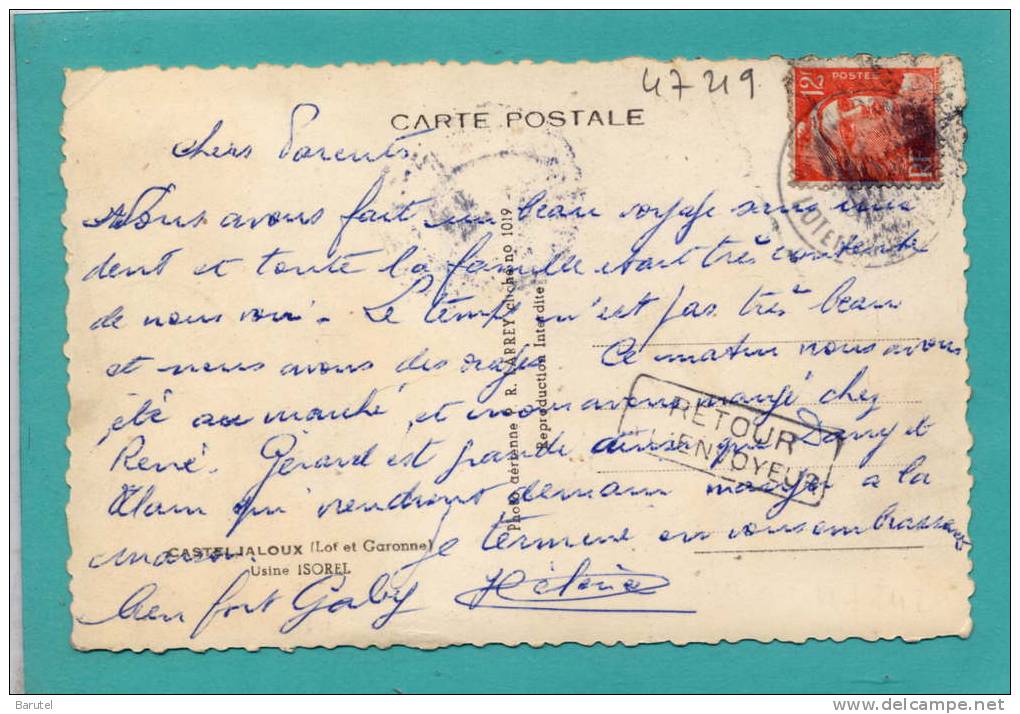 47 219
12F
POSTES
RF
CARTE POSTALE
Chers Parents
Nous avons fait un beau voyage sans inci
dent et toute la famille était très contente
de nous voir. Le temps n'est pas très beau
et nous avons des orages. Ce matin nous avons
été au marché et nous avons mangé chez
René. Gérard est grande ainsi que Dany et
Alain qui viendront demain manger à la
maison. Je termine en vous embrassant
bien fort Gaby Hélène
Photo aérienne R. LARREY cliché no 1019
Reproduction Interdite
RETOUR
L'ENVOYEUR
CASTELJALOUX (Lot et Garonne)
Usine ISOREL
Barutel
www.delcampe.net